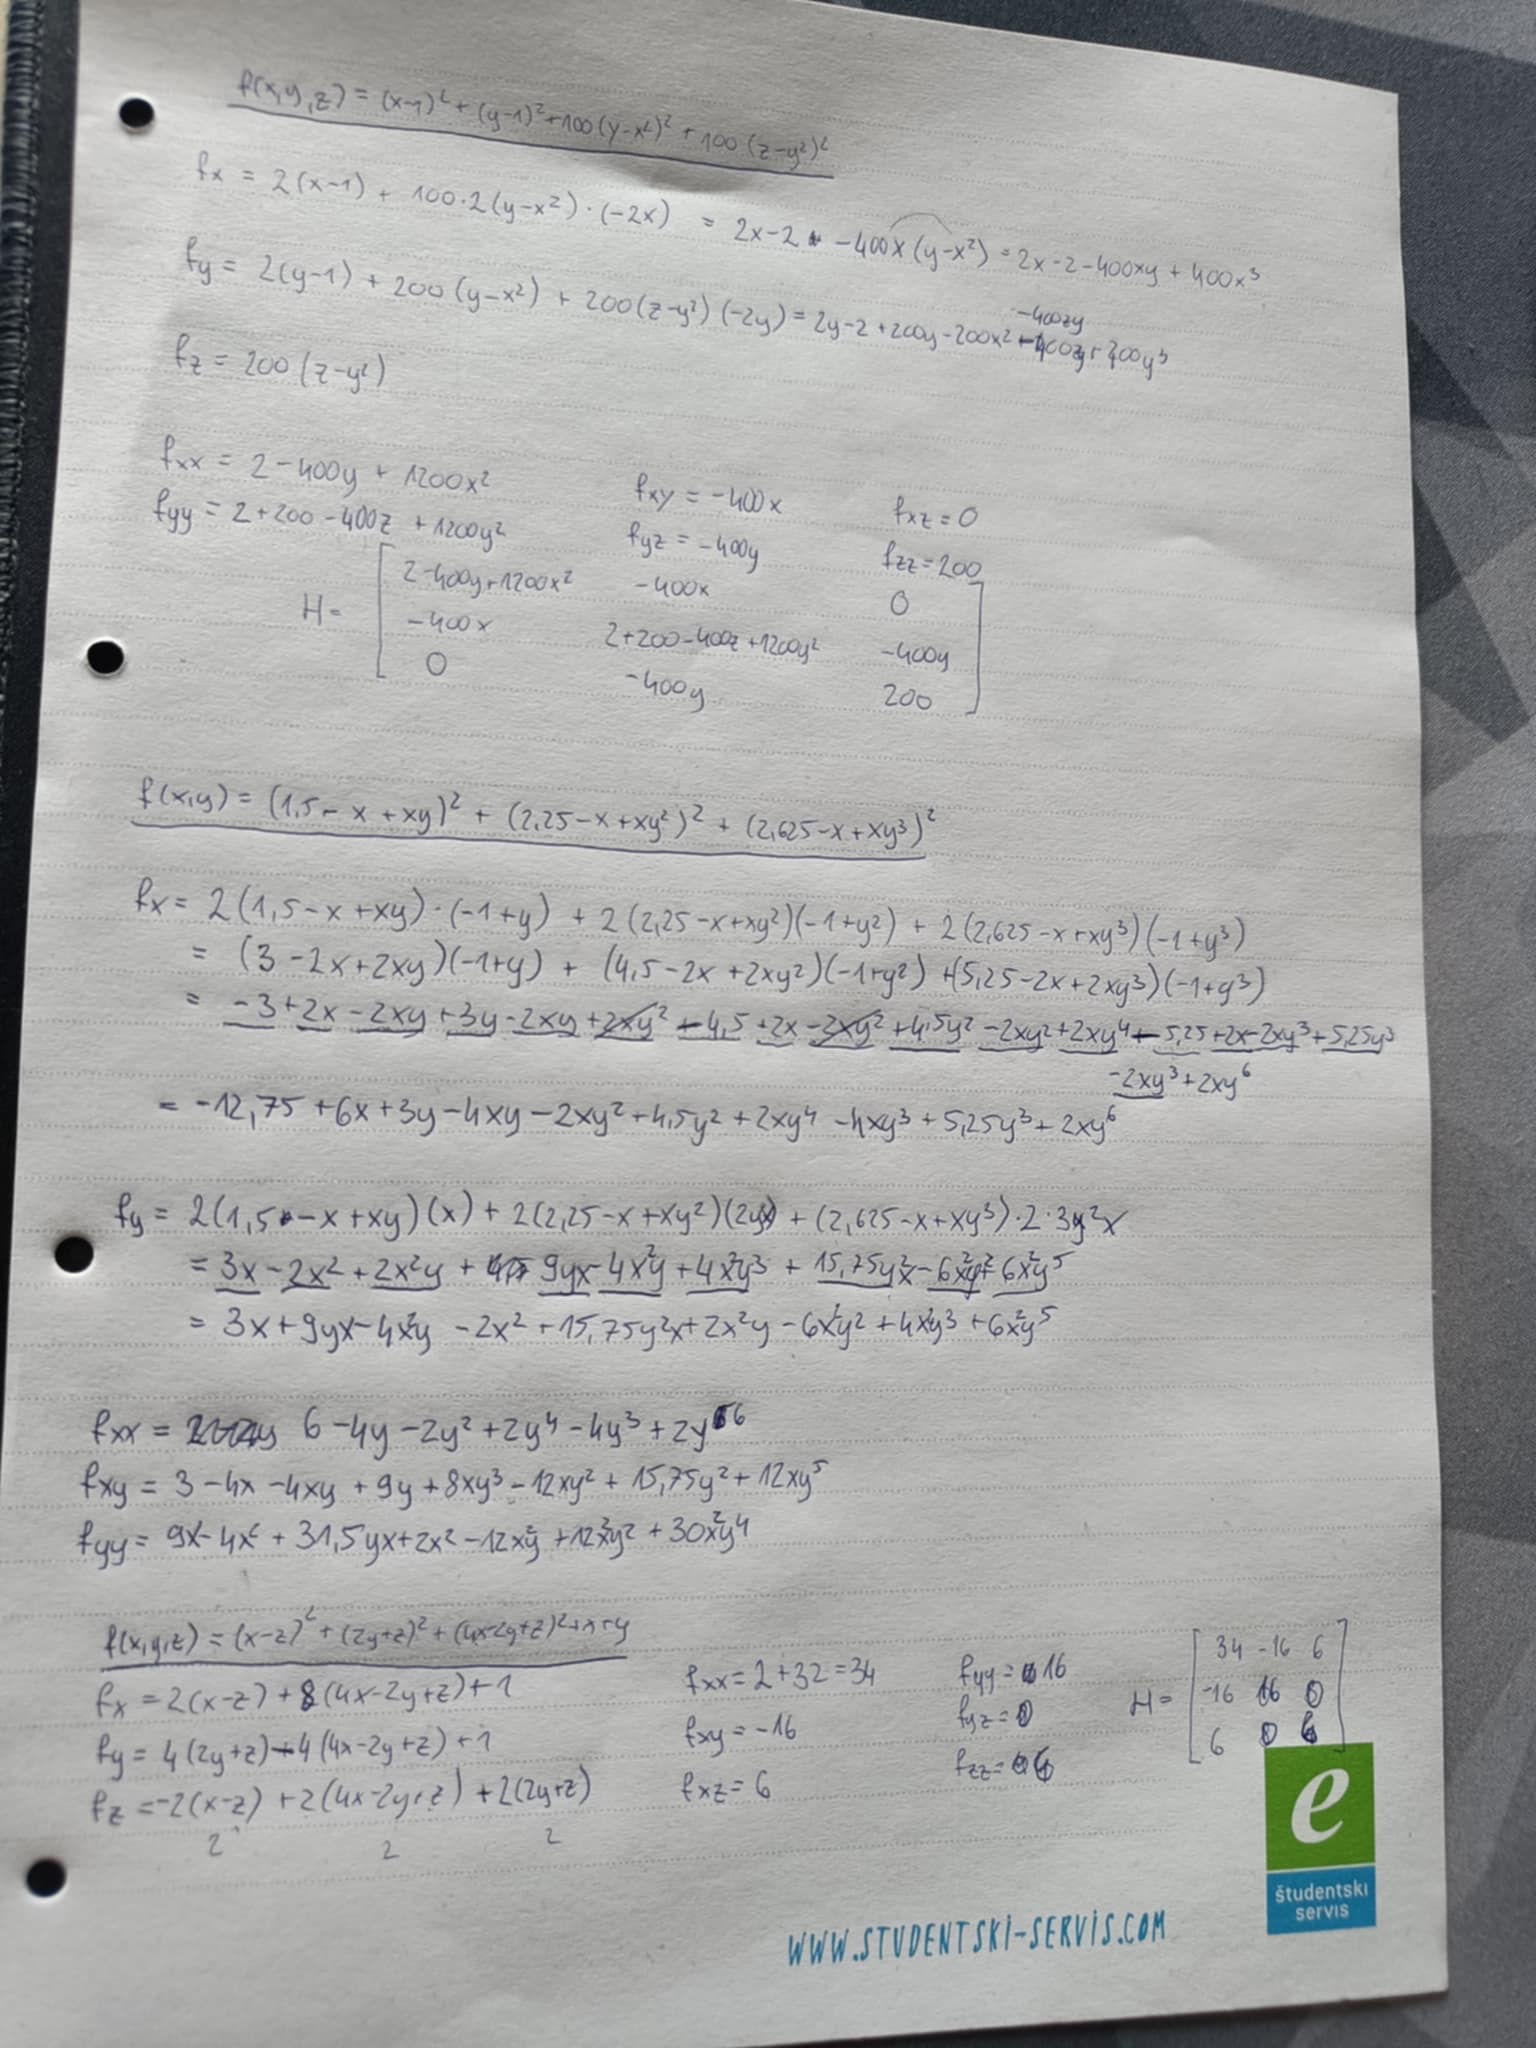 f(x,y,z) = (x-1)² + (y-1)² + 100(y-x²)² + 100(z-y²)²
fx = 2(x-1) + 100·2(y-x²)·(-2x) = 2x-2 -400x(y-x²) = 2x-2-400xy + 400x³
fy = 2(y-1) + 200(y-x²) + 200(z-y²)(-2y) = 2y-2+200y-200x² -400zy + 400y³
fz = 200(z-y²)
fxx = 2-400y + 1200x² fxy = -400x fxz = 0
fyy = 2+200-400z + 1200y² fyz = -400y fzz = 200
2-400y+1200x² -400x 0
H= -400x 2+200-400z+1200y² -400y
0 -400y 200
f(x,y) = (1,5-x+xy)² + (2,25-x+xy²)² + (2,625-x+xy³)²
fx = 2(1,5-x+xy)·(-1+y) + 2(2,25-x+xy²)(-1+y²) + 2(2,625-x+xy³)(-1+y³)
= (3-2x+2xy)(-1+y) + (4,5-2x+2xy²)(-1+y²) + (5,25-2x+2xy³)(-1+y³)
= -3+2x-2xy+3y-2xy+2xy²-4,5+2x-2xy²+4,5y²-2xy²+2xy⁴-5,25+2x-2xy³+5,25y³
-2xy³+2xy⁶
= -12,75+6x+3y-4xy-2xy²+4,5y²+2xy⁴-4xy³+5,25y³+2xy⁶
fy = 2(1,5-x+xy)(x) + 2(2,25-x+xy²)(2yx) + (2,625-x+xy³)·2·3y²x
= 3x-2x²+2x²y + 9yx-4x²y+4x²y³ + 15,75y²x-6x²y²+6x²y⁵
= 3x+9yx-4x²y-2x²+15,75y²x+2x²y-6x²y²+4x²y³+6x²y⁵
fxx = 6-4y-2y²+2y⁴-4y³+2y⁶
fxy = 3-4x-4xy+9y+8xy³-12xy²+15,75y²+12xy⁵
fyy = 9x-4x²+31,5yx+2x²-12x²y+12x²y²+30x²y⁴
f(x,y,z) = (x-z)² + (2y+z)² + (4x-2y+z)²+x+y
fx = 2(x-z) + 8(4x-2y+z)+1 fxx = 2+32=34 fyy = 16
fy = 4(2y+z)-4(4x-2y+z)+1 fxy = -16 fyz = 0
fz = -2(x-z) + 2(4x-2y+z) + 2(2y+z) fxz = 6 fzz = 6
2 2 2
34 -16 6
H= -16 16 0
6 0 6
e
študentski
servis
WWW.STUDENTSKI-SERVIS.COM